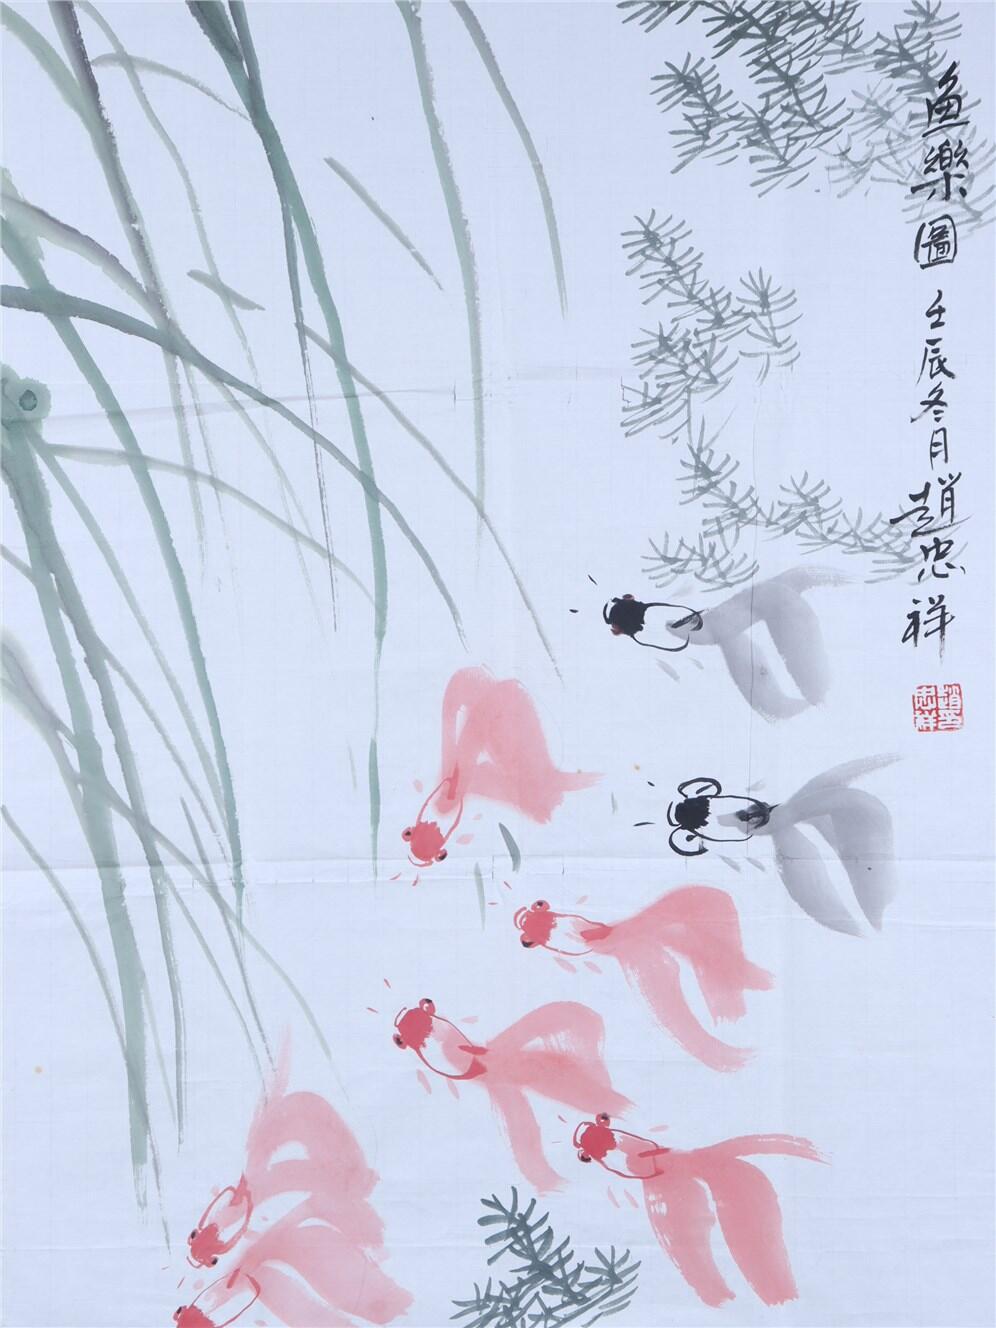 魚樂圖 壬辰冬月 趙忠祥
趙忠祥印